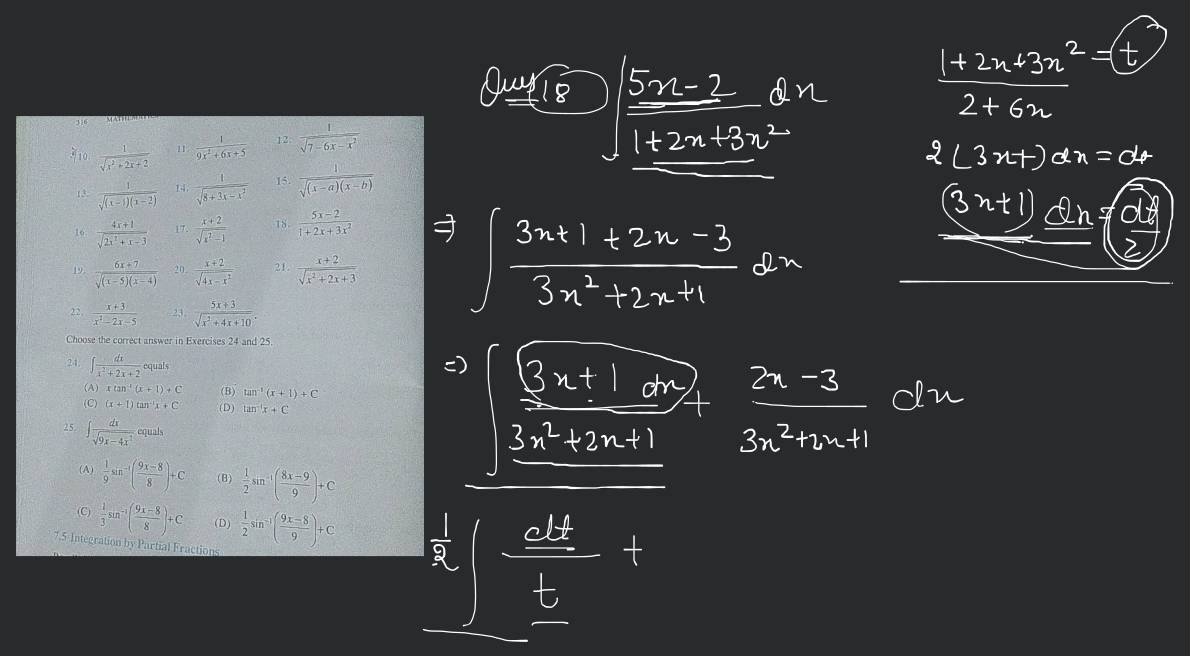 316 MATHEMATICS
10. 1/√(x²+2x+2) 11. 1/(9x²+6x+5) 12. 1/√(7−6x−x²)
13. 1/√((x−1)(x−2)) 14. 1/√(8+3x−x²) 15. 1/√((x−a)(x−b))
16. (4x+1)/√(2x²+x−3) 17. (x+2)/√(x²−1) 18. (5x−2)/(1+2x+3x²)
19. (6x+7)/√((x−5)(x−4)) 20. (x+2)/√(4x−x²) 21. (x+2)/√(x²+2x+3)
22. (x+3)/(x²−2x−5) 23. (5x+3)/√(x²+4x+10).
Choose the correct answer in Exercises 24 and 25.
24. ∫dx/(x²+2x+2) equals
(A) x tan⁻¹ (x + 1) + C (B) tan⁻¹ (x + 1) + C
(C) (x + 1) tan⁻¹x + C (D) tan⁻¹x + C
25. ∫dx/√(9x−4x²) equals
(A) 1/9 sin⁻¹((9x−8)/8)+C (B) 1/2 sin⁻¹((8x−9)/9)+C
(C) 1/3 sin⁻¹((9x−8)/8)+C (D) 1/2 sin⁻¹((9x−8)/9)+C
7.5 Integration by Partial Fractions
18 ∫(5x−2)/(1+2x+3x²) dx
⇒ ∫(3x+1+2x−3)/(3x²+2x+1) dx
⇒ ∫(3x+1 dx)/(3x²+2x+1) + (2x−3)/(3x²+2x+1) dx
1/2 ∫dt/t +
1+2x+3x² = t
2+6x
2(3x+)dx = dt
(3x+1) dx = dt/2